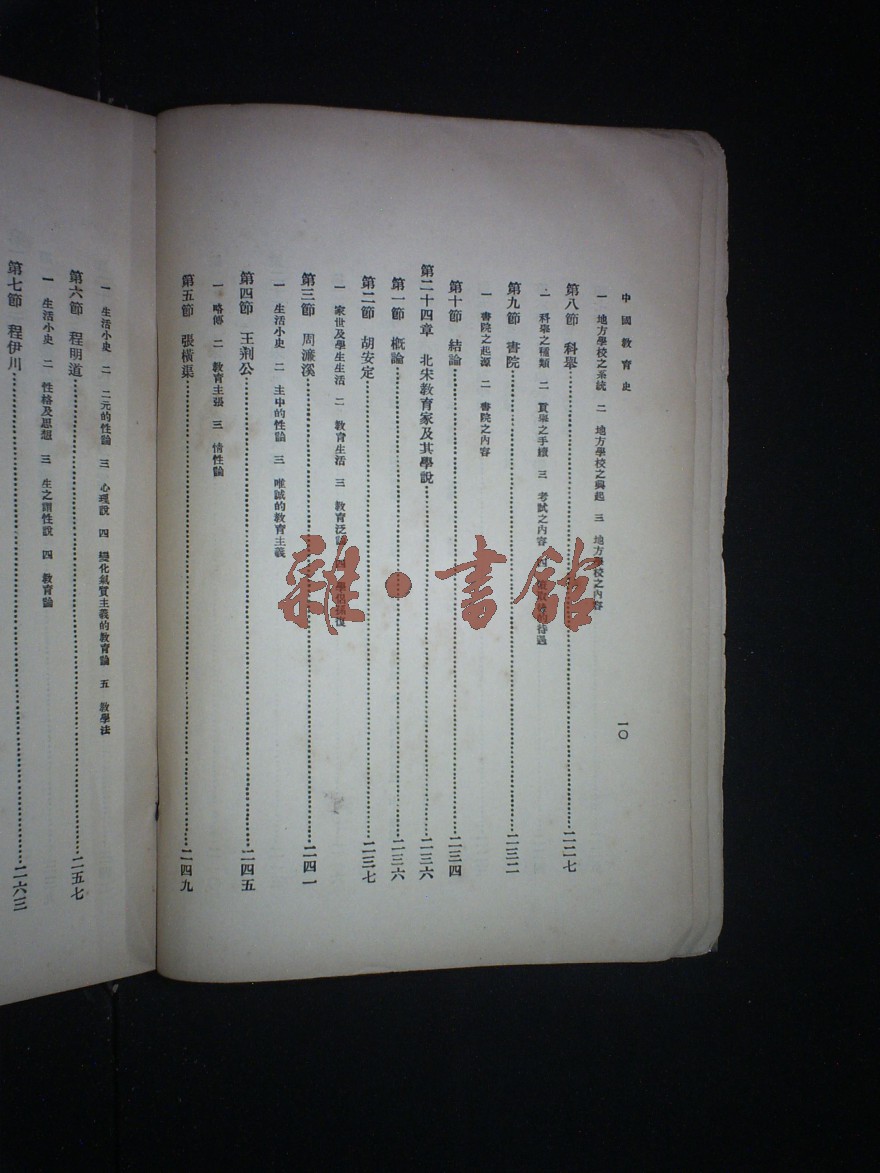 中國教育史 一〇
一 地方學校之系統 二 地方學校之興起 三 地方學校之內容
第八節 科舉……二二七
一 科舉之種類 二 貢舉之手續 三 考試之內容 四 待遇
第九節 書院……二三二
一 書院之起源 二 書院之內容
第十節 結論……二三四
第二十四章 北宋教育家及其學說……二三六
第一節 概論……二三六
第二節 胡安定……二三七
一 家世及學生生活 二 教育生活 三 教育泛論 四 學侶孫復
第三節 周濂溪……二四一
一 生活小史 二 主中的性論 三 唯誠的教育主義
第四節 王荆公……二四五
一 略傳 二 教育主張 三 情性論
第五節 張橫渠……二四九
一 生活小史 二 二元的性論 三 心理說 四 變化氣質主義的教育論 五 教學法
第六節 程明道……二五七
一 生活小史 二 性格及思想 三 生之謂性說 四 教育論
第七節 程伊川……二六三
雜·書館